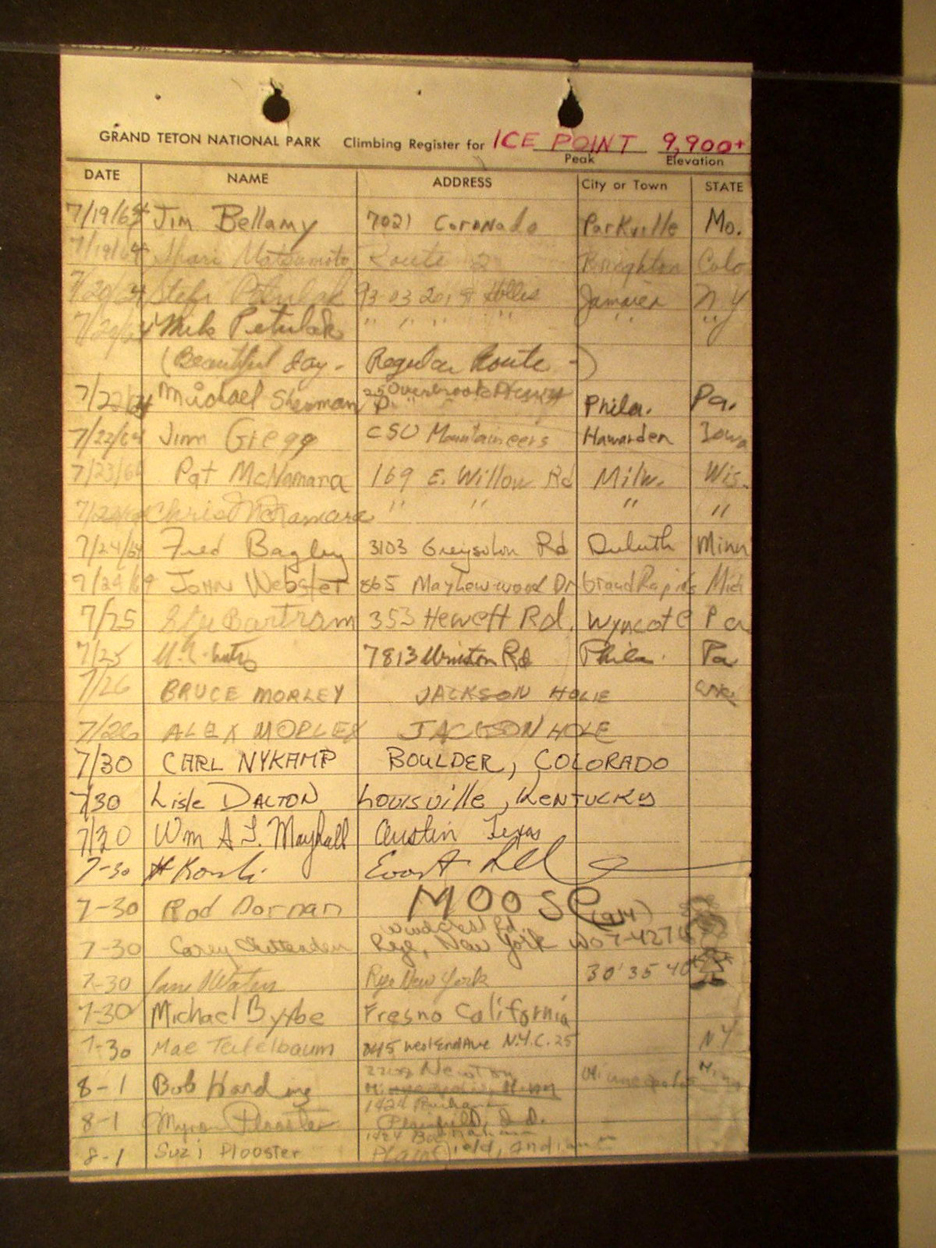 GRAND TETON NATIONAL PARK Climbing Register for ICE POINT 9,900+
Peak Elevation
DATE NAME ADDRESS City or Town STATE
7/19/64 Jim Bellamy 7021 Coronado Parkville Mo.
7/19/64 Shari Matsumoto Route 2 Brighton Colo
7/20/64 Petrulak Hollis Jamaica N.Y
Mike Petrulak " " " " " "
(Beautiful day - Regular Route -)
7/22/64 Michael Sherman Phila. Pa.
7/22/64 Jim Gregg CSU Mountaineers Hawarden Iowa
7/23/64 Pat McNamara 169 E. Willow Rd Milw. Wis.
Chris McNamara " " " "
7/24/64 Fred Bagley 3103 Greysolon Rd Duluth Minn
7/24/64 John Webster 865 Mayhew-wood Dr Grand Rapids Mich
7/25 Bartram 353 Hewett Rd. Wyncote Pa
7/25 7813 Winston Rd Phila. Pa
7/26 BRUCE MORLEY JACKSON HOLE
7/26 ALEX MORLEY JACKSON HOLE
7/30 CARL NYKAMP BOULDER, COLORADO
7/30 Lisle DALTON LOUISVILLE, KENTUCKY
7/30 Wm A.S. Mayhall Austin Texas
7-30
7-30 Rod Dornan MOOSE
(914)
7-30 Carey Chittenden Rye, New York WO7-4274
7-30 Jane Waters Rye New York 30'35'40
7-30 Michael Byrbe Fresno California
7-30 Mae Teitelbaum 845 West End Ave N.Y.C. 25 NY
8-1 Bob Harding Newton Minneapolis Minn
8-1 Myron Plooster
8-1 Suzi Plooster Plainfield, Indiana